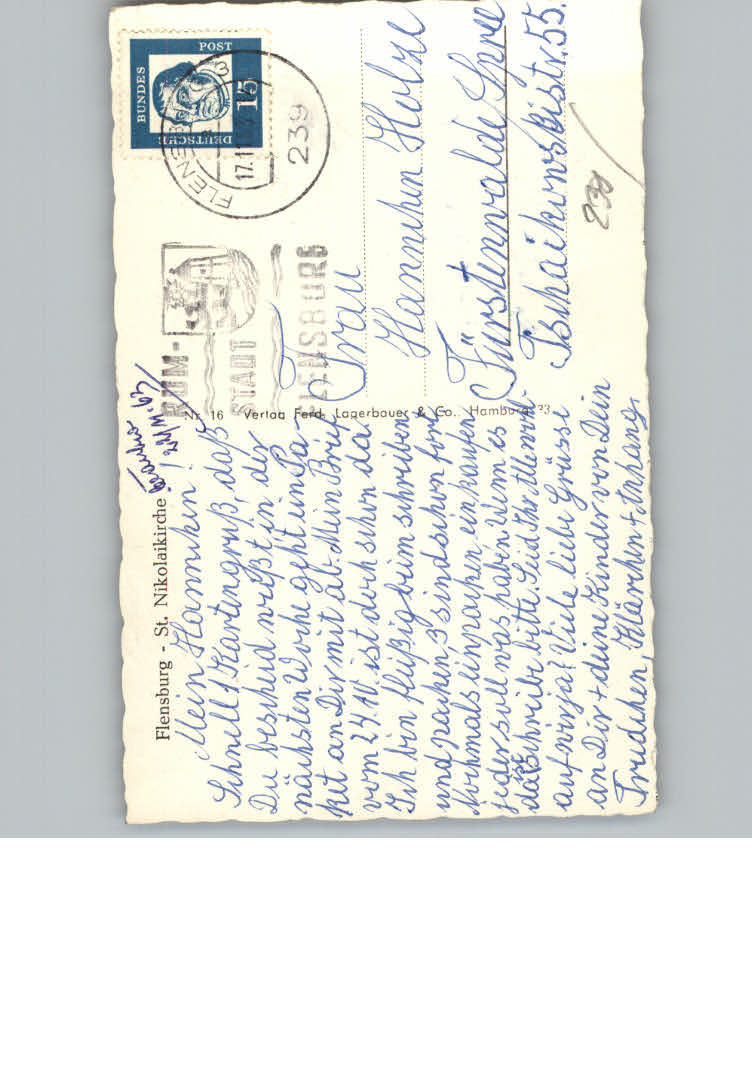 Flensburg - St. Nikolaikirche
Mein Hannchen!
Schnell 1 Kartengruß, daß
Du bescheid weißt, in der
nächsten Woche geht ein Pa-
ket an Dir mit ab. Mein Brief
vom 24.10. ist doch schon da.
Ich bin fleißig beim schreiben
und packen, 3 sind schon fort.
Nochmals einpacken, einkaufen
jeder soll was haben. Wenn es
da ist schreibe bitte. Seid Ihr alle wohl-
auf wir ja! Viele liebe Grüsse
an Dir + deine Kinder von Dein
Trudchen, Klärchen + Anhang.
24/11.63
Nr. 16 Verlag Ferd. Lagerbauer & Co., Hamburg 23
DEUTSCHE
BUNDES
POST
15
FLENSB
17.11
239
RUM-
STADT
FLENSBURG
Frau
Hannchen Holze
Fürstenwalde Spree
Tschaikowskistr. 55.
230